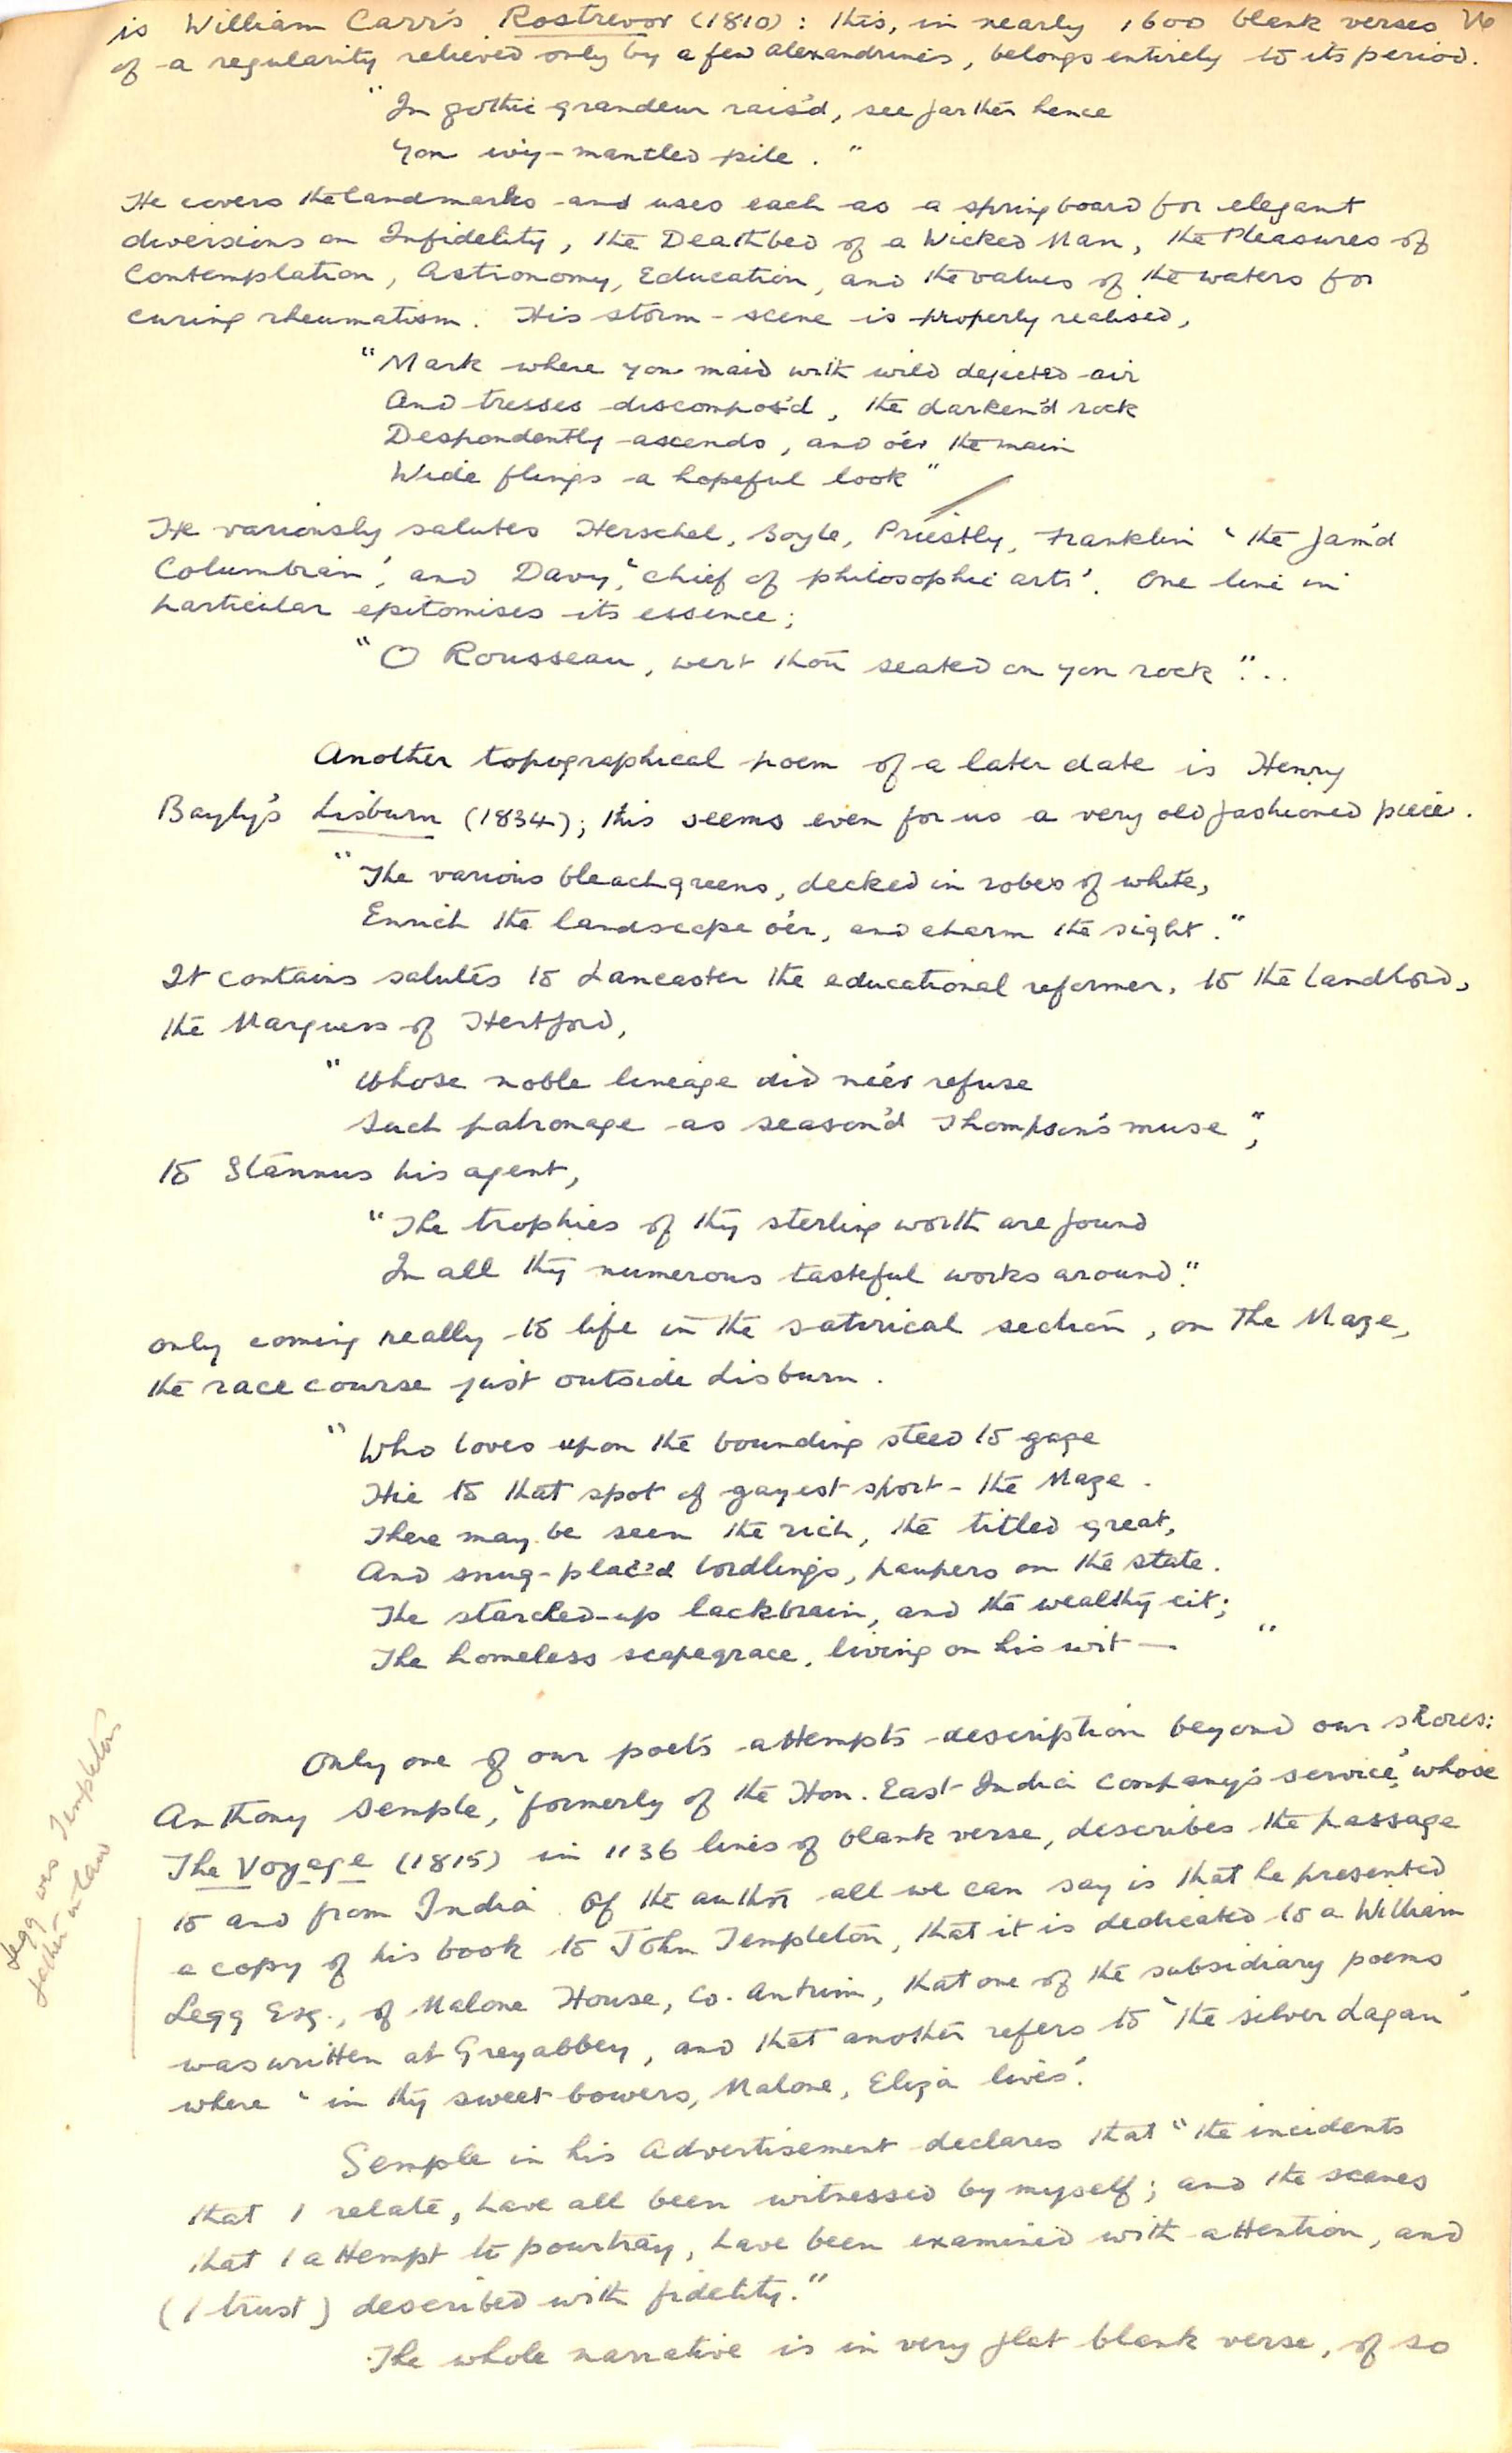 is William Carr's Rostrevor (1810): this, in nearly 1600 blank verses
of a regularity relieved only by a few alexandrines, belongs entirely to its period.
"In gothic grandeur rais'd, see farther hence
Yon ivy-mantled pile."
He covers the landmarks and uses each as a springboard for elegant
diversions on Infidelity, the Deathbed of a Wicked Man, the Pleasures of
Contemplation, Astronomy, Education, and the values of the waters for
curing rheumatism. His storm-scene is properly realised,
"Mark where yon maid with wild dejected air
And tresses discompos'd, the darken'd rock
Despondently ascends, and o'er the main
Wide flings a hopeful look"
He variously salutes Herschel, Boyle, Priestly, Franklin 'the fam'd
Columbian', and Davy, 'chief of philosophic arts'. One line in
particular epitomises its essence;
"O Rousseau, wert thou seated on yon rock"...
Another topographical poem of a later date is Henry
Bayly's Lisburn (1834); this seems even for us a very old fashioned piece.
"The various bleachgreens, decked in robes of white,
Enrich the landscape o'er, and charm the sight."
It contains salutes to Lancaster the educational reformer, to the landlord,
the Marquess of Hertford,
"Whose noble lineage did ne'er refuse
Such patronage as season'd Thompson's muse",
to Stannus his agent,
"The trophies of thy sterling worth are found
In all thy numerous tasteful works around."
only coming really to life in the satirical section, on The Maze,
the race course just outside Lisburn.
"Who loves upon the bounding steed to gage
Hie to that spot of gayest sport - the Maze.
There may be seen the rich, the titled great,
And snug-plac'd lordlings, paupers on the state.
The starched-up lackbrain, and the wealthy cit;
The homeless scapegrace, living on his wit — "
Only one of our poets attempts description beyond our shores:
Anthony Semple, 'formerly of the Hon. East India Company's service', whose
The Voyage (1815) in 1136 lines of blank verse, describes the passage
to and from India. Of the author all we can say is that he presented
a copy of his book to John Templeton, that it is dedicated to a William
Legg Esq., of Malone House, Co. Antrim, that one of the subsidiary poems
was written at Greyabbey, and that another refers to 'the silver Lagan'
where 'in thy sweet bowers, Malone, Eliza lives'.
Legg was Templeton's
father in law
Semple in his Advertisement declares that "the incidents
that I relate, have all been witnessed by myself; and the scenes
that I attempt to pourtray, have been examined with attention, and
(I trust) described with fidelity."
The whole narrative is in very flat blank verse, of so